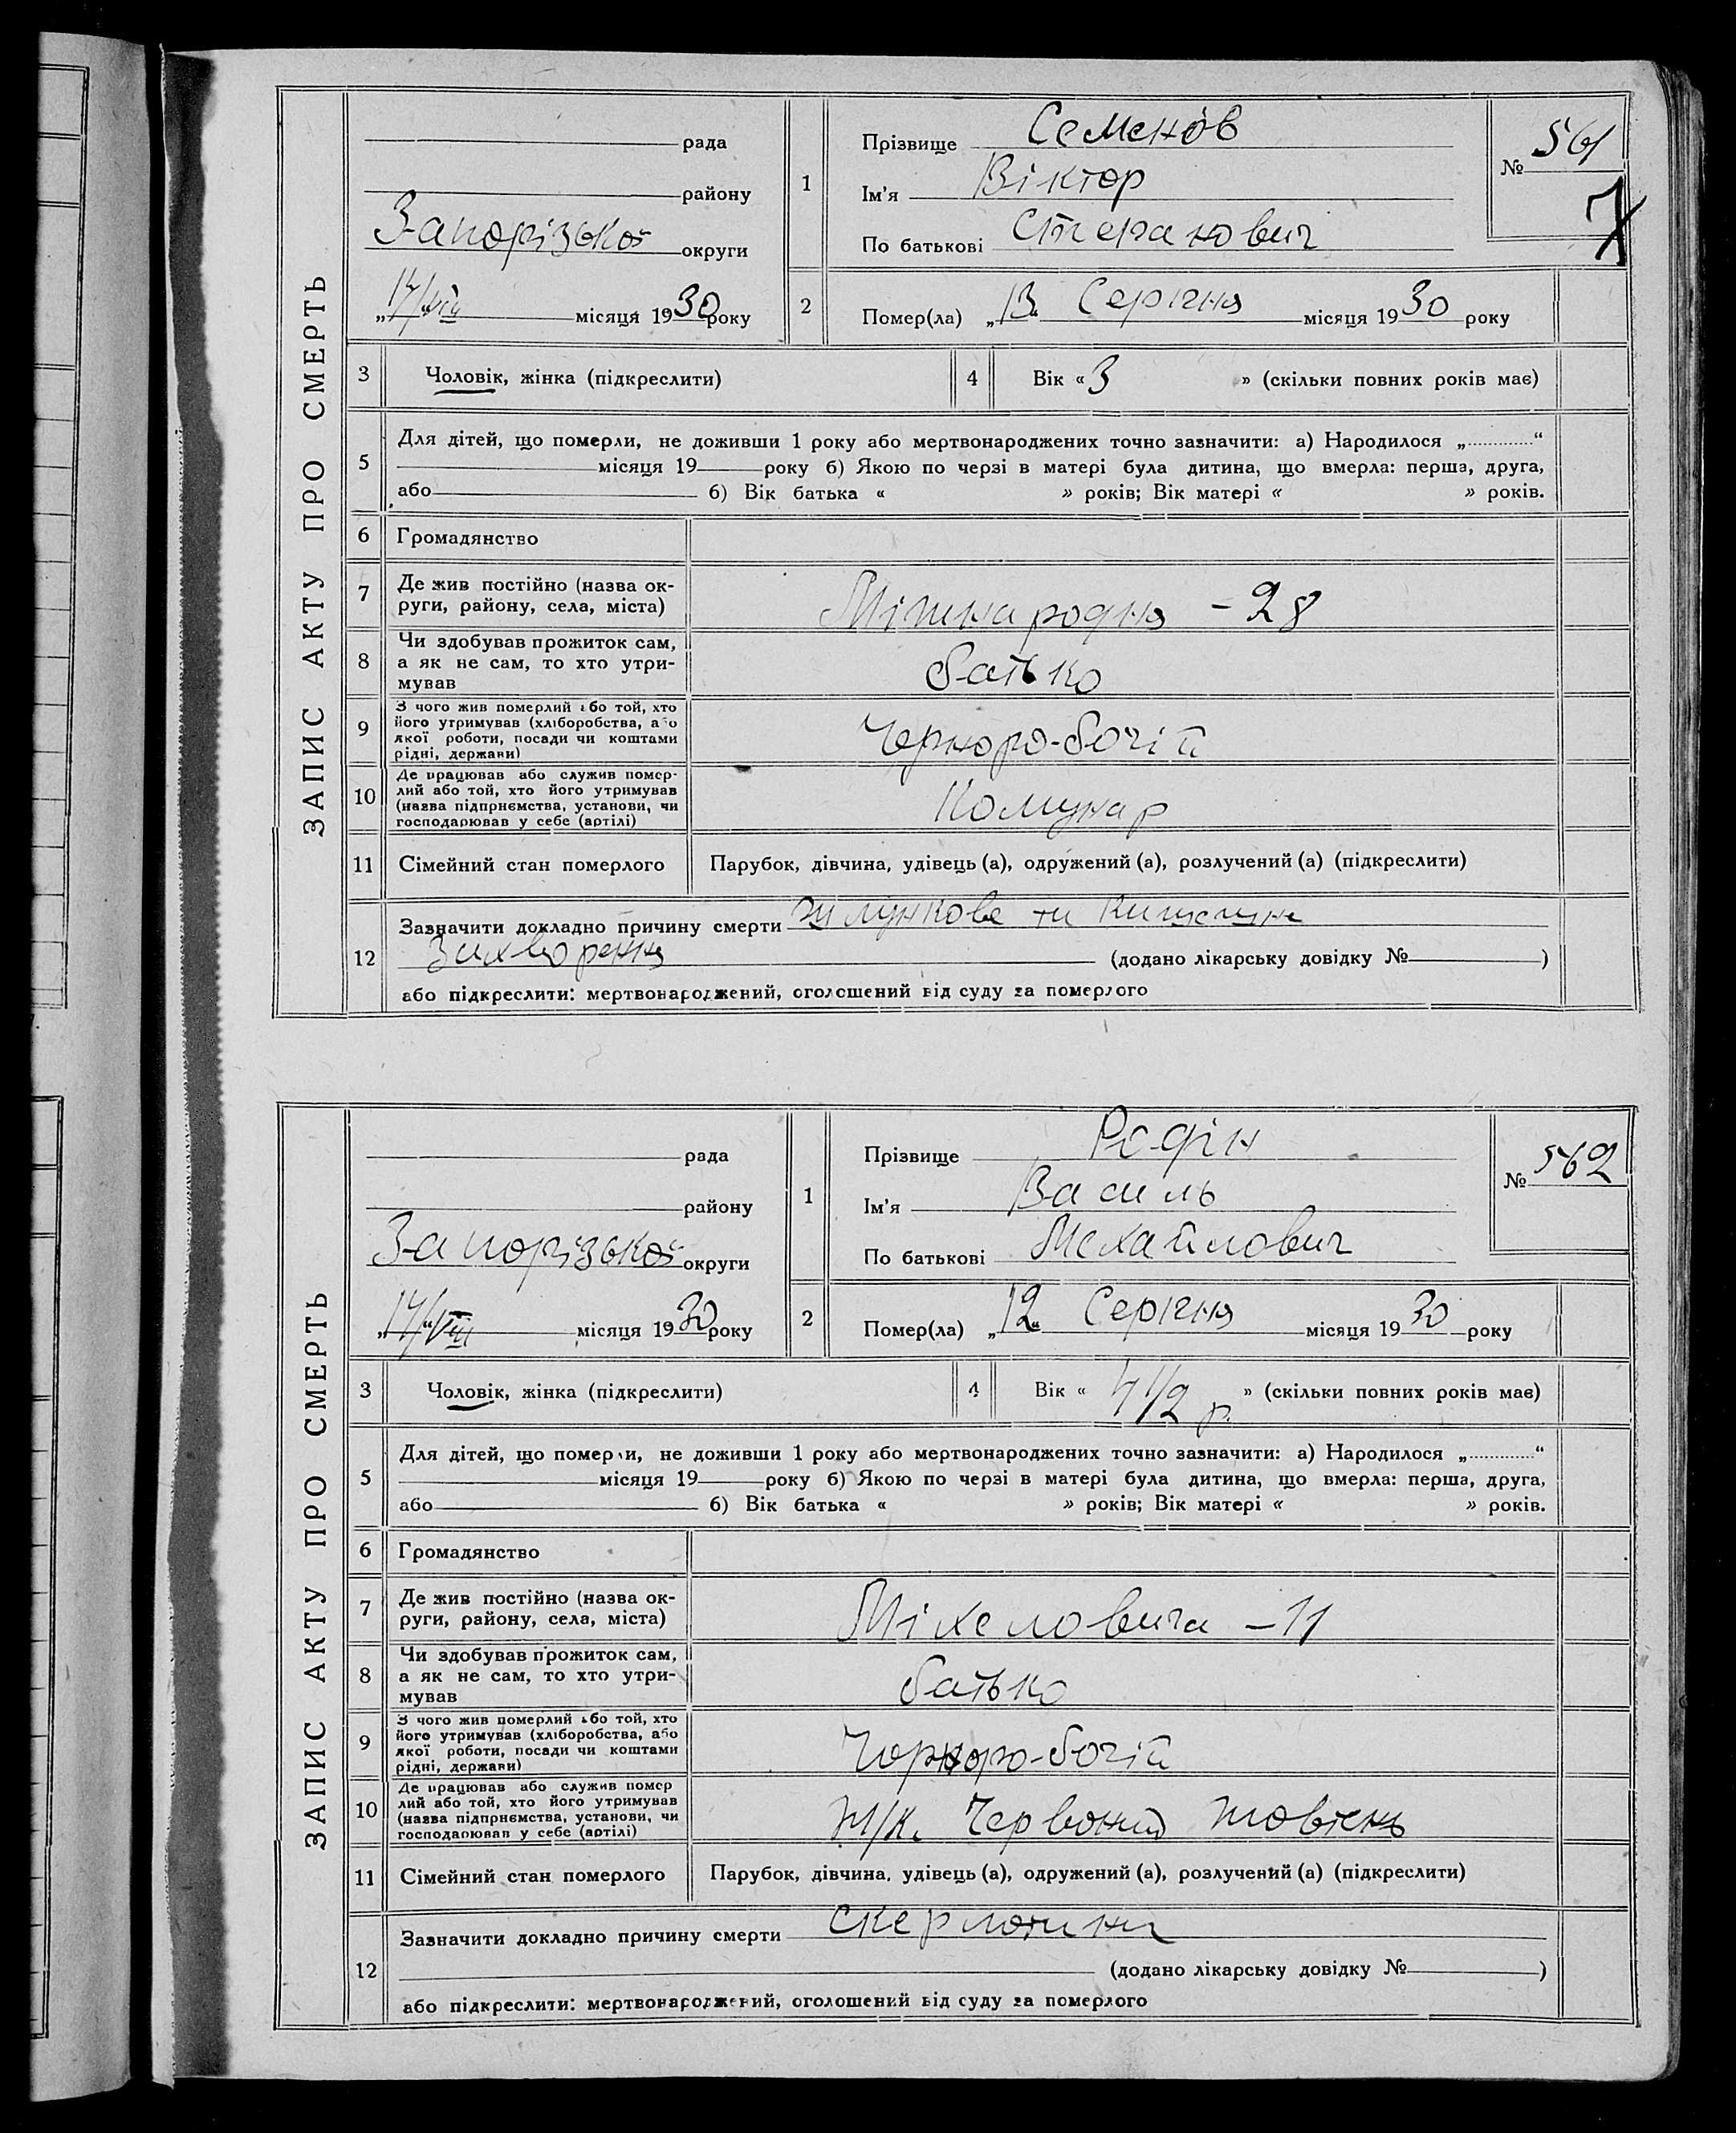 ЗАПИС АКТУ ПРО СМЕРТЬ
рада
району
Запорізької округи
„17/VIII місяця 1930 року
1
Прізвище Семенов
Ім'я Віктор
По батькові Степанович
№ 561
2
Помер(ла) „13“ Серпня місяця 1930 року
3
Чоловік, жінка (підкреслити)
4
Вік «3 » (скільки повних років має)
5
Для дітей, що померли, не доживши 1 року або мертвонароджених точно зазначити: а) Народилося „............“
місяця 19 року б) Якою по черзі в матері була дитина, що вмерла: перша, друга,
або б) Вік батька « » років; Вік матері « » років.
6
Громадянство
7
Де жив постійно (назва ок-
руги, району, села, міста)
Міжнародня - 28
8
Чи здобував прожиток сам,
а як не сам, то хто утри-
мував
батько
9
З чого жив померлий або той, хто
його утримував (хліборобства, або
якої роботи, посади чи коштами
рідні, держави)
Чорноро-бочій
10
Де працював або служив помер-
лий або той, хто його утримував
(назва підприємства, установи, чи
господарював у себе (артілі)
Комунар
11
Сімейний стан померлого
Парубок, дівчина, удівець (а), одружений (а), розлучений (а) (підкреслити)
12
Зазначити докладно причину смерти шлункове та кишечне
захворення (додано лікарську довідку № )
або підкреслити: мертвонароджений, оголошений від суду за померлого
ЗАПИС АКТУ ПРО СМЕРТЬ
рада
району
Запорізької округи
„17/“VIII місяця 1930 року
1
Прізвище Родін
Ім'я Василь
По батькові Михайлович
№ 562
2
Помер(ла) „12“ Серпня місяця 1930 року
3
Чоловік, жінка (підкреслити)
4
Вік « 4 1/2 р. » (скільки повних років має)
5
Для дітей, що померли, не доживши 1 року або мертвонароджених точно зазначити: а) Народилося „............“
місяця 19 року б) Якою по черзі в матері була дитина, що вмерла: перша, друга,
або б) Вік батька « » років; Вік матері « » років.
6
Громадянство
7
Де жив постійно (назва ок-
руги, району, села, міста)
Міхеловича - 11
8
Чи здобував прожиток сам,
а як не сам, то хто утри-
мував
батько
9
З чого жив померлий або той, хто
його утримував (хліборобства, або
якої роботи, посади чи коштами
рідні, держави)
Чорноро-бочій
10
Де працював або служив помер
лий або той, хто його утримував
(назва підприємства, установи, чи
господарював у себе (артілі)
Ж/К. Червоний Жовтень
11
Сімейний стан померлого
Парубок, дівчина, удівець (а), одружений (а), розлучений (а) (підкреслити)
12
Зазначити докладно причину смерти Скерлотина
(додано лікарську довідку № )
або підкреслити: мертвонароджений, оголошений від суду за померлого